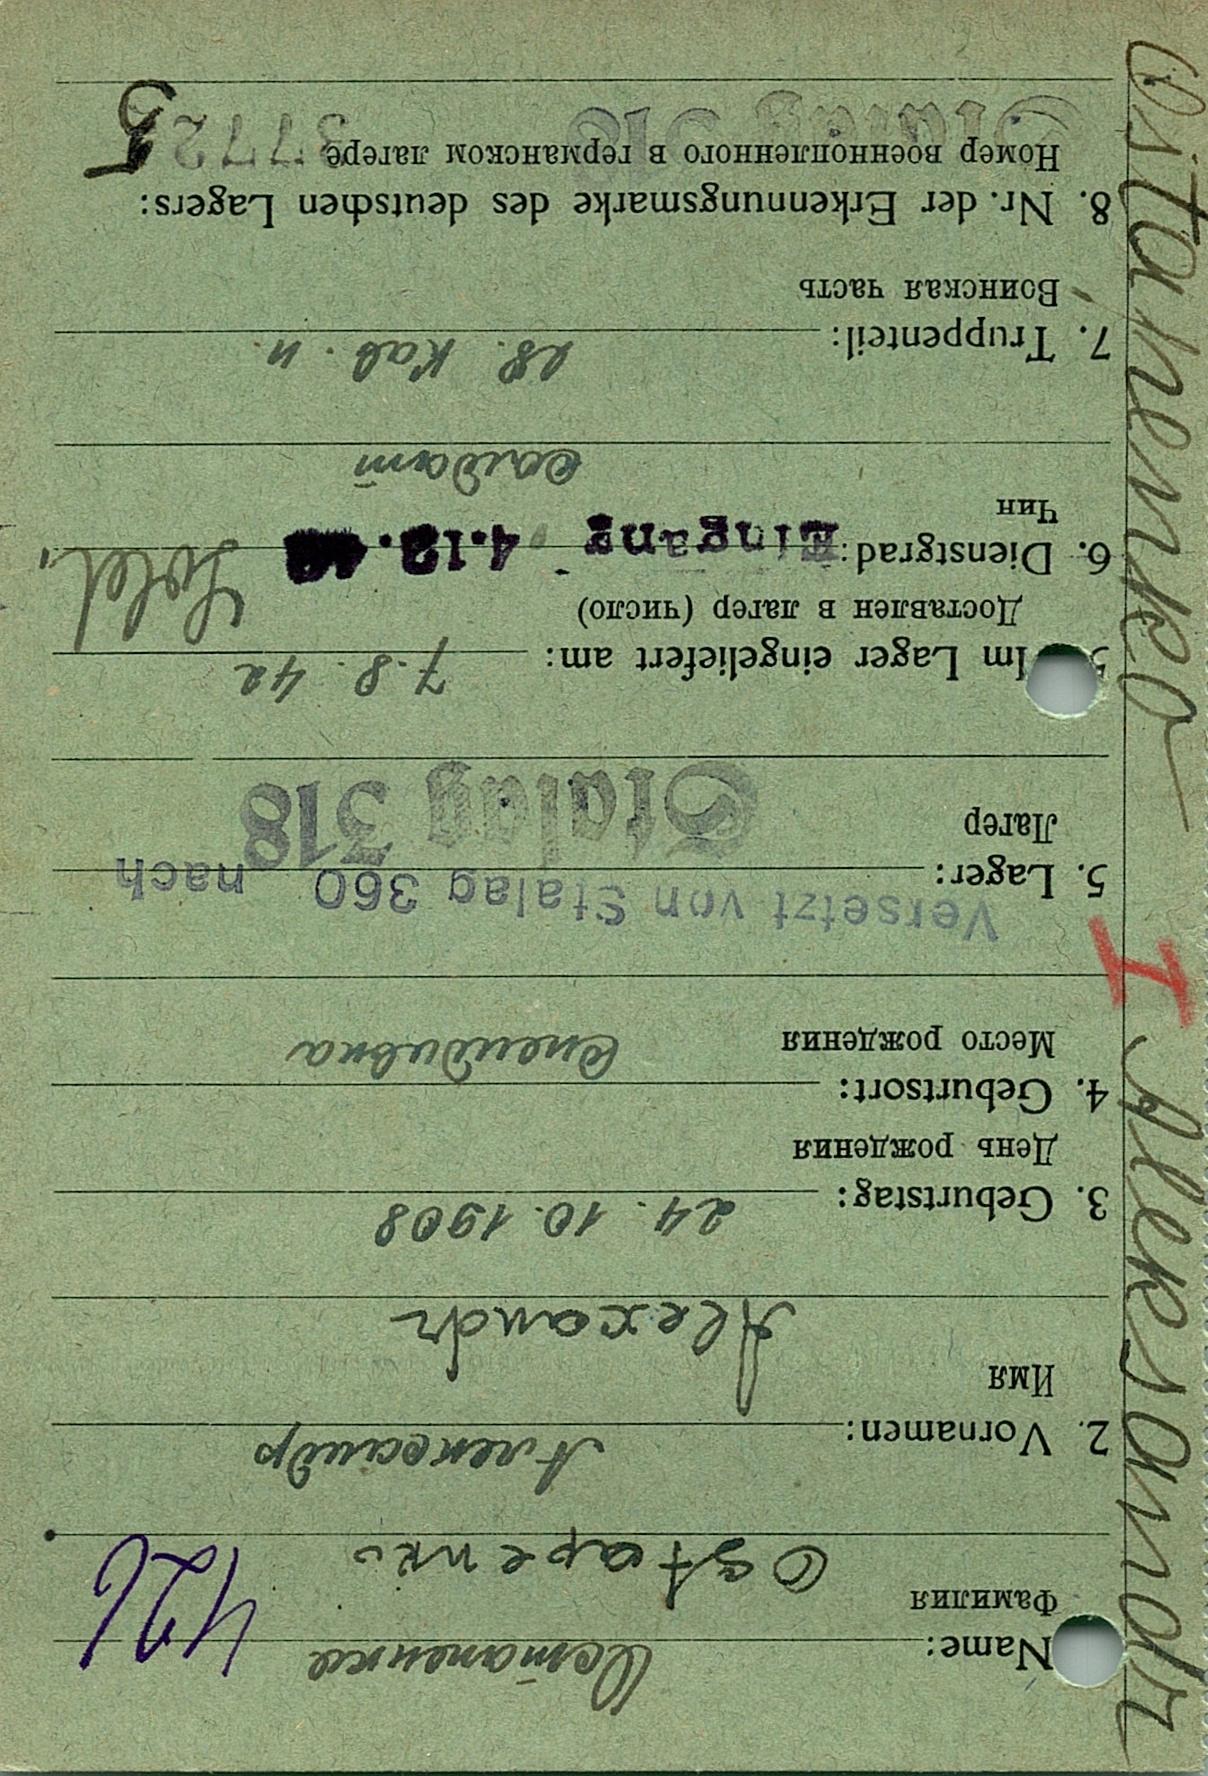 Name: Остапенко 426
Фамилия
Ostapenko
2. Vornamen: Александр
Имя
Alexandr
3. Geburtstag: 24. 10. 1908
День рождения
4. Geburtsort:
Место рождения
Versetzt von Stalag 360 nach
5. Lager: Stalag 318
Лагер
5. Im Lager eingeliefert am: 7. 8. 42
Доставлен в лагер (число)
6. Dienstgrad: Eingang 4.12. Sold.
Чин
солдат
7. Truppenteil: 28. Кав. п.
Воинская часть
8. Nr. der Erkennungsmarke des deutschen Lagers:
Номер военнопленного в германском лагере
Stalag 318 37725
Aleksandr I